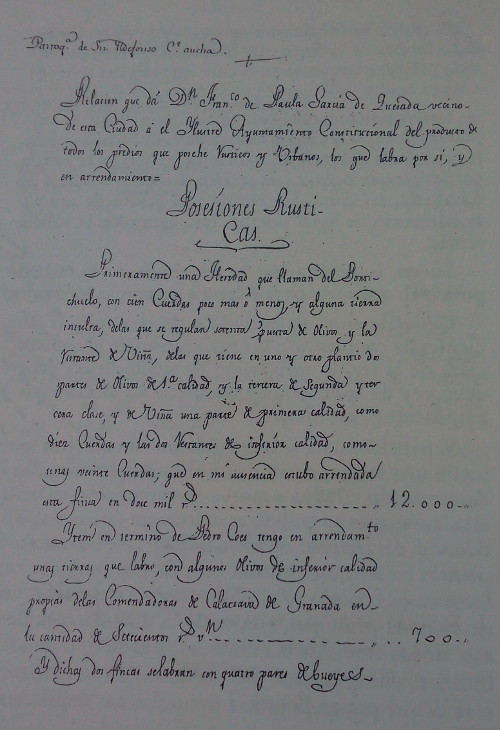 Parroq.ª de Sn. Ildefonso C.ª ancha.
Relacion que dá Dn. Fran.co de Paula Garcia de Quesada vecino
de esta Ciudad á el Yllustre Ayuntamiento Constitucional del producto de
todos los predios que posehe Rusticos y Urbanos, los que labra por sí, y
en arrendamiento=
Posesiones Rusti-
Cas.
Primeramente una Heredad que llaman del Ponti-
chuelo, con cien Cuerdas poco mas ó menos, y alguna tierra
inculta, delas que se regulan setenta puesta de Olivos, y la
restante de Viña, delas que tiene en uno y otro plantio dos
partes de Olivos de 1.ª calidad, y la tercera de Segunda y ter
cera clase, y de Viña una parte de primera calidad, como
diez Cuerdas y las dos restantes de inferior calidad, como
unas veinte Cuerdas; que en mi ausencia estubo arrendada
esta finca en doce mil rd. 12.000
Ytem en termino de Pedro Coes tengo en arrendam.to
unas tierras que labro, con algunos Olivos de inferior calidad
propias delas Comendadoras de Calatrava de Granada en
la cantidad de Setecientos rd. vn. 700
Y dichas dos fincas selabran con quatro pares de bueyes